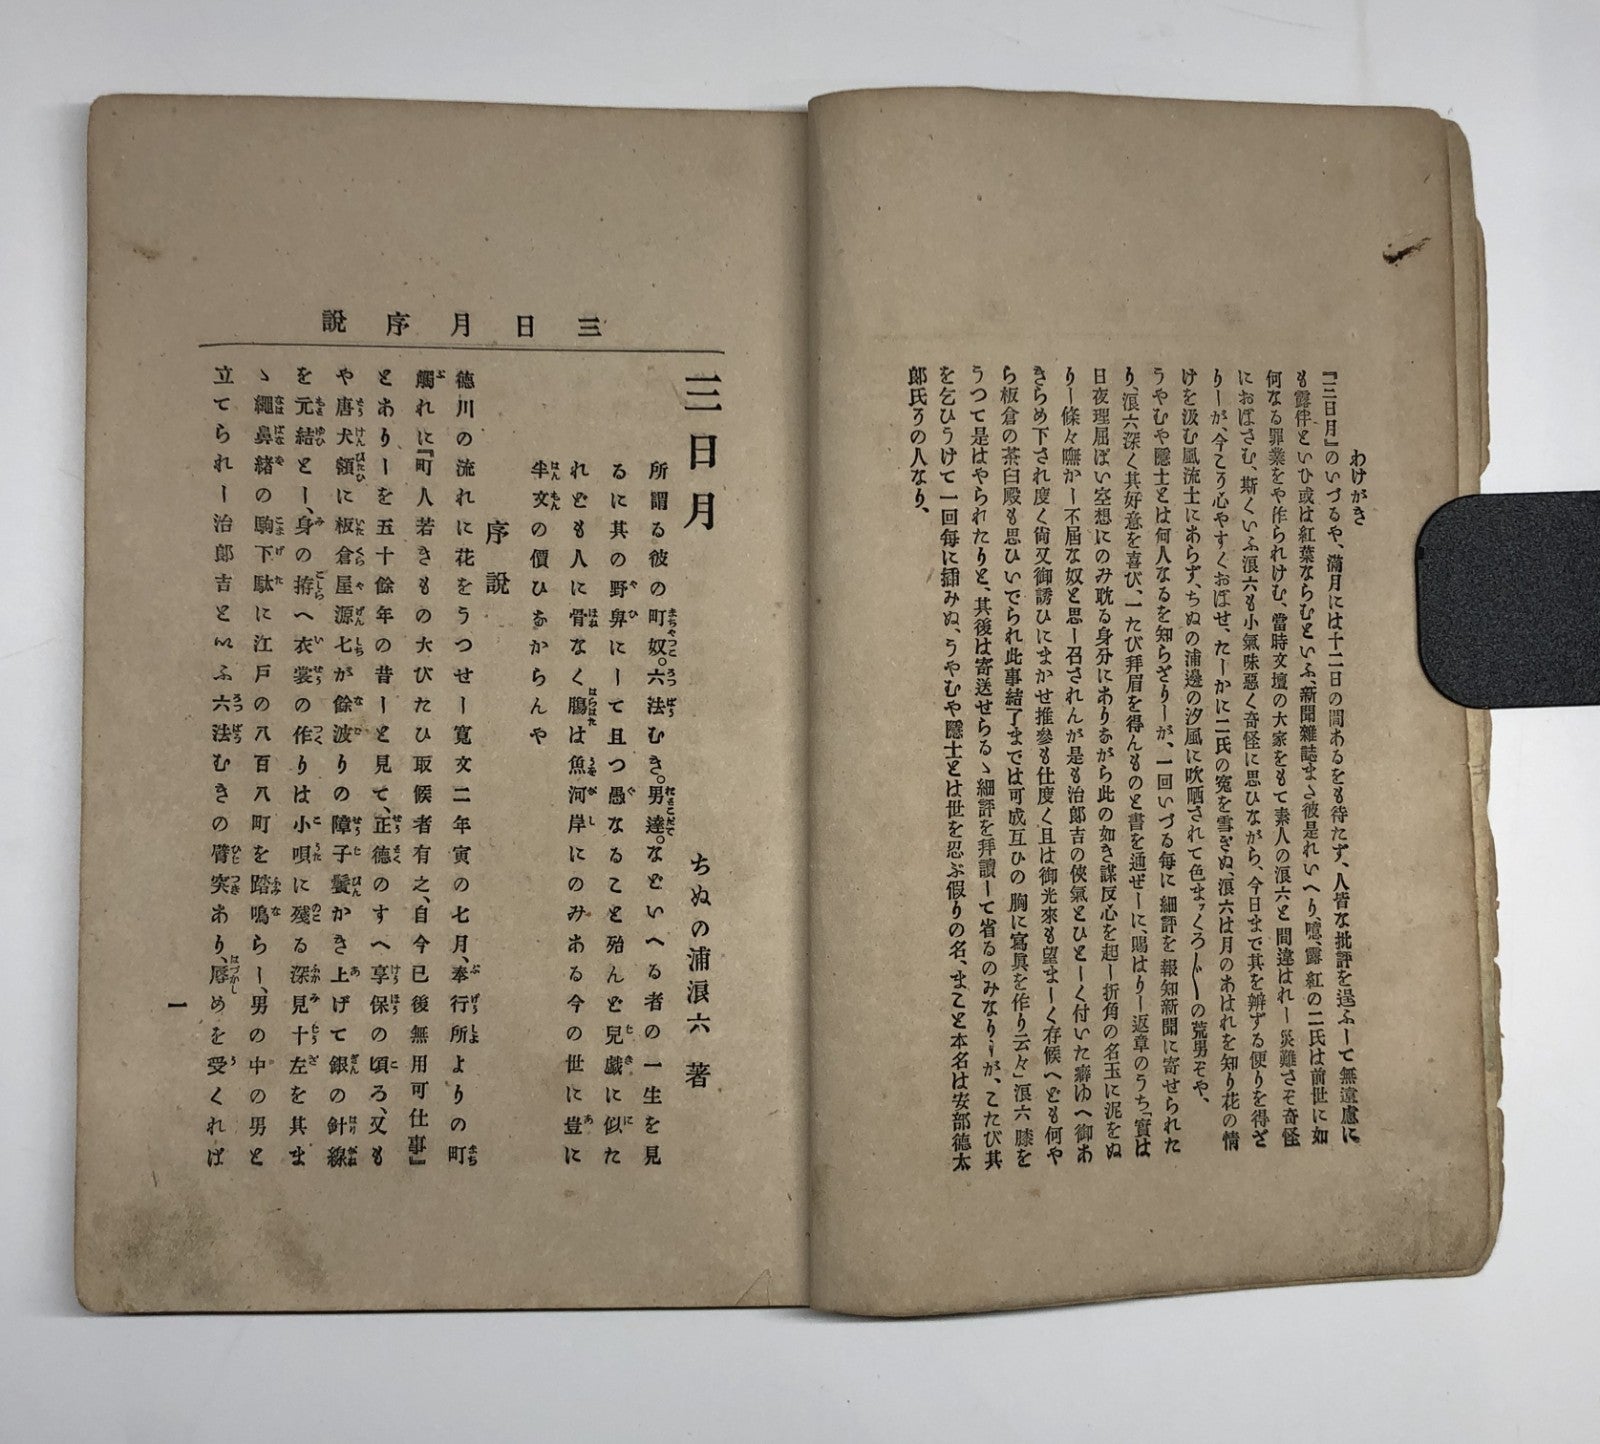 わけがき
『三日月』のいづるや、滿月には十二日の間あるをも待たず、人皆な批評を逞ふして無遠慮に
も露伴といひ或は紅葉ならむといふ、新聞雜誌まゝ彼是れいへり、噫、露紅の二氏は前世に如
何なる罪業をや作られけむ、當時文壇の大家をもて素人の浪六と間違はれし災難さぞ奇怪
におぼさむ、斯くいふ浪六も小氣味惡く奇怪に思ひながら、今日まで其を辨ずる便りを得ざ
りしが、今こそ心やすくおぼせ、たしかに二氏の寃を雪ぎぬ、浪六は月のあはれを知り花の情
けを汲む風流士にあらず、ちぬの浦邊の汐風に吹晒されて色まッくろしじしの荒男ぞや、
うやむや隱士とは何人なるを知らざりしが、一回いづる毎に細評を報知新聞に寄せられた
り、浪六深く其好意を喜び、一たび拜眉を得んものと書を通ぜしに、賜はりし返章のうち「實は
日夜理屈ぽい空想にのみ耽る身分にありながら此の如き謀反心を起し折角の名玉に泥をぬ
りし條々嘸かし不屆な奴と思し召されんが是も治郎吉の俠氣とひとしく付いた癖ゆへ御あ
きらめ下され度く尙又御誘ひにまかせ推參も仕度く且は御光來も望ましく存候へども何や
ら板倉の茶臼殿も思ひいでられ此事結了までは可成互ひの胸に寫眞を作り云々」浪六膝を
うつて是はやられたりと、其後は寄送せらるゝ細評を拜讀して省るのみなりしが、こたび其
を乞ひうけて一回毎に插みぬ、うやむや隱士とは世を忍ぶ假りの名、まこと本名は安部德太
郎氏その人なり、
三日月序說
三日月
ちぬの浦浪六 著
所謂る彼の町奴。六法むき。男達。などいへる者の一生を見
るに其の野卑にして且つ愚なること殆んど兒戲に似た
れども人に骨なく膓は魚河岸にのみある今の世に豈に
半文の價ひなからんや
序說
德川の流れに花をうつせし寛文二年寅の七月、奉行所よりの町
觸れに『町人若きもの大びたひ取候者有之、自今已後無用可仕事』
とありしを五十餘年の昔しと見て、正德のすへ享保の頃ろ、又も
や唐犬額に板倉屋源七が餘波りの障子鬢かき上げて銀の針線
を元結とし、身の拵へ衣裳の作りは小唄に殘る深見十左を其ま
ゝ繩鼻緖の駒下駄に江戸の八百八町を踏鳴らし、男の中の男と
立てられし治郞吉といふ六法むきの臂突あり、辱めを受くれば
一